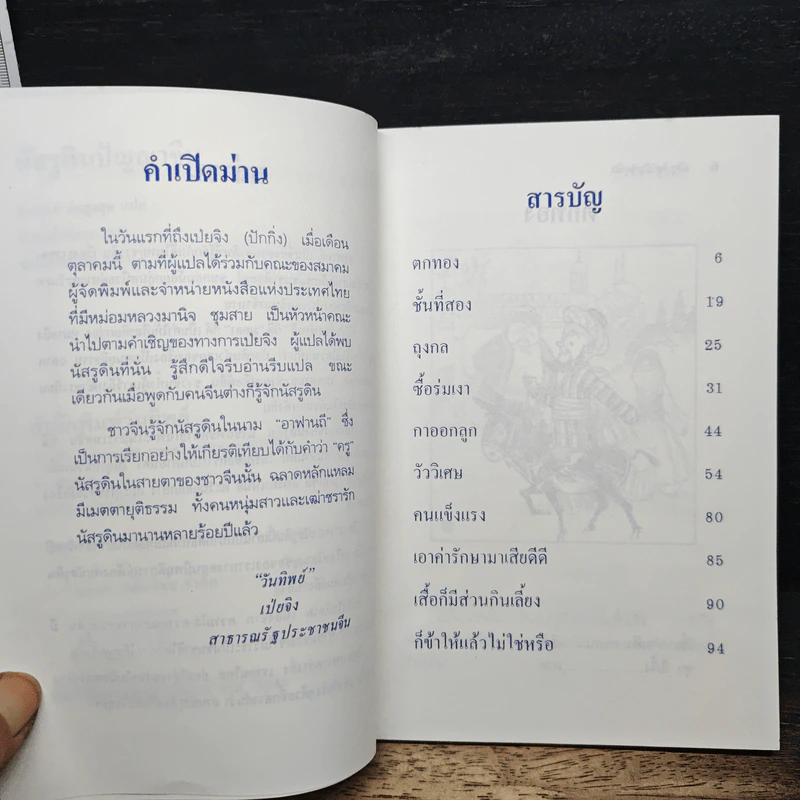 คำเปิดม่าน
ในวันแรกที่ถึงเป่ยจิง (ปักกิ่ง) เมื่อเดือน
ตุลาคมนี้ ตามที่ผู้แปลได้ร่วมกับคณะของสมาคม
ผู้จัดพิมพ์และจำหน่ายหนังสือแห่งประเทศไทย
ที่มีหม่อมหลวงมานิจ ชุมสาย เป็นหัวหน้าคณะ
นำไปตามคำเชิญของทางการเป่ยจิง ผู้แปลได้พบ
นัสรูดินที่นั่น รู้สึกดีใจรีบอ่านรีบแปล ขณะ
เดียวกันเมื่อพูดกับคนจีนต่างก็รู้จักนัสรูดิน
ชาวจีนรู้จักนัสรูดินในนาม “อาฟานถี” ซึ่ง
เป็นการเรียกอย่างให้เกียรติเทียบได้กับคำว่า “ครู”
นัสรูดินในสายตาของชาวจีนนั้น ฉลาดหลักแหลม
มีเมตตายุติธรรม ทั้งคนหนุ่มสาวและเฒ่าชรารัก
นัสรูดินมานานหลายร้อยปีแล้ว
“วันทิพย์”
เป่ยจิง
สาธารณรัฐประชาชนจีน
สารบัญ
ตกทอง 6
ชั้นที่สอง 19
ถุงกล 25
ซื้อร่มเงา 31
กาออกลูก 44
วัววิเศษ 54
คนแข็งแรง 80
เอาค่ารักษามาเสียดีดี 85
เสื้อก็มีส่วนกินเลี้ยง 90
ก็ข้าให้แล้วไม่ใช่หรือ 94